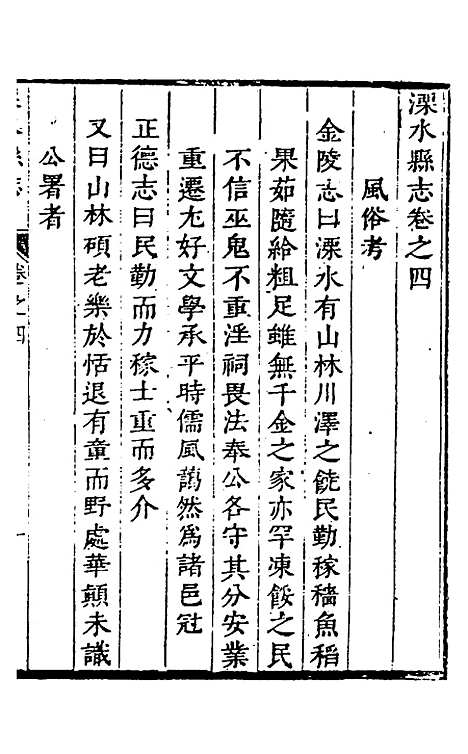 溧水縣志卷之四
風俗考
金陵志曰溧水有山林川澤之饒民勤稼穡魚稻
果茹隨給粗足雖無千金之家亦罕凍餒之民
不信巫鬼不重淫祠畏法奉公各守其分安業
重遷尤好文學承平時儒風藹然爲諸邑冠
正德志曰民勤而力稼士重而多介
又曰山林碩老樂於恬退有童而野處華顛未識
公署者
卷之四
一